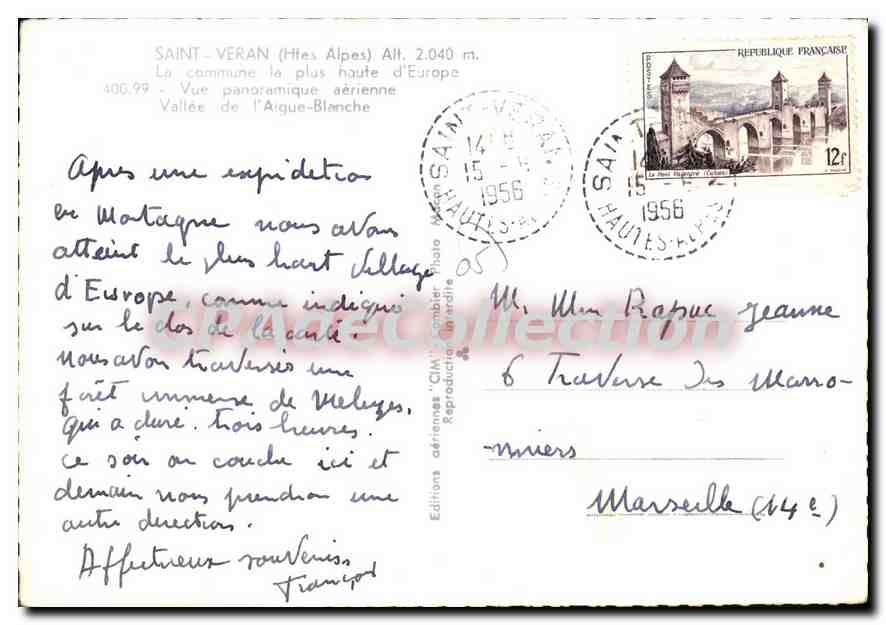 SAINT-VERAN (Htes Alpes) Alt. 2.040 m.
La commune la plus haute d'Europe
400.99 - Vue panoramique aérienne
Vallée de l'Aigue-Blanche
Après une expidetion
en Montagne nous avons
atteint le plus haut village
d'Europe, comme indiqué
sur le dos de la carte.
nous avon traversés une
forêt immense de Melezes,
qui a duré trois heures.
ce soir on couche ici et
demain nous prendron une
autre direction.
Affectueux souvenirs
François
Editions aériennes "CIM" Combier Photo Macon
Reproduction interdite
SAINT-VERAN
14 H
15 -
1956
HAUTES-ALPES
SAINT
15 -
1956
HAUTES-ALPES
REPUBLIQUE FRANÇAISE
POSTES
Le Pont Valentré (Cahors)
12f
05
M. Mme Rapuc Jeanne
6 Traverse des Marro-
niers
Marseille (14e)
CPADECollection